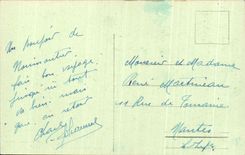 Un bonjour de
Noirmoutier
fais bon voyage
jusqu'ici tout
va bien mais
gare au retour
Charles
Monsieur et Madame
René Martineau
11 Rue de Touraine
Nantes